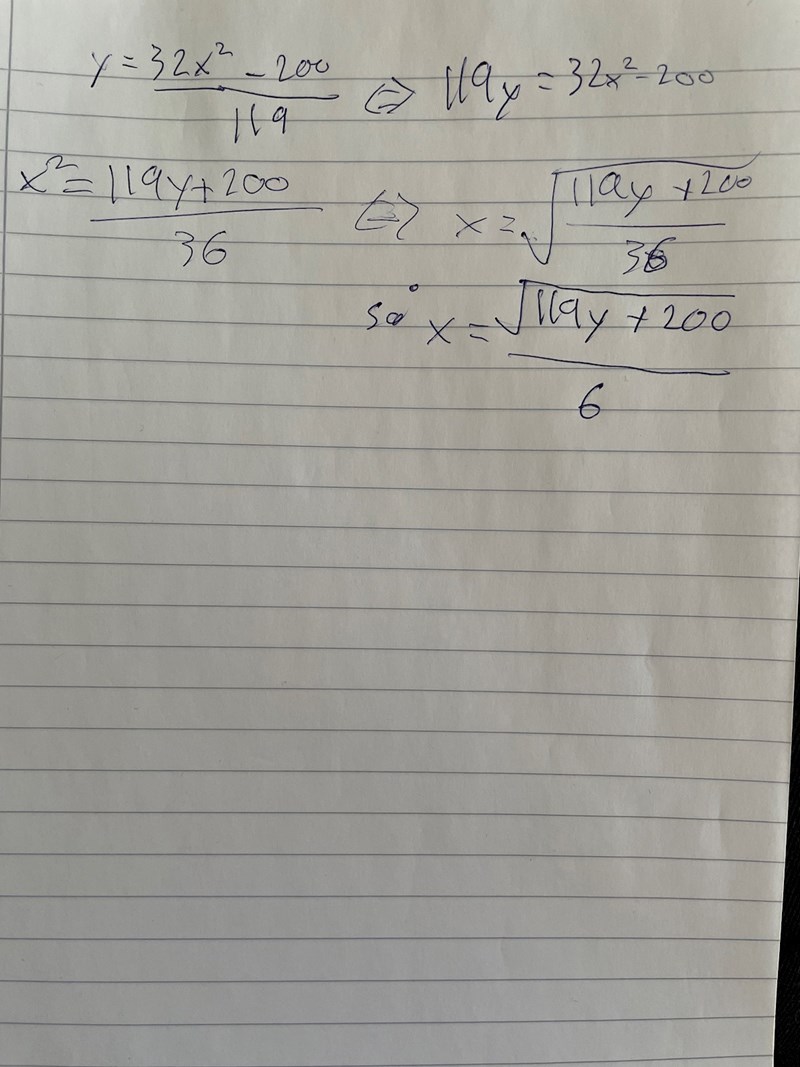 y = (32x² - 200)/119 ⇔ 119y = 32x² - 200
x² = (119y + 200)/36 ⇔ x = √((119y + 200)/36)
so x = √(119y + 200)/6